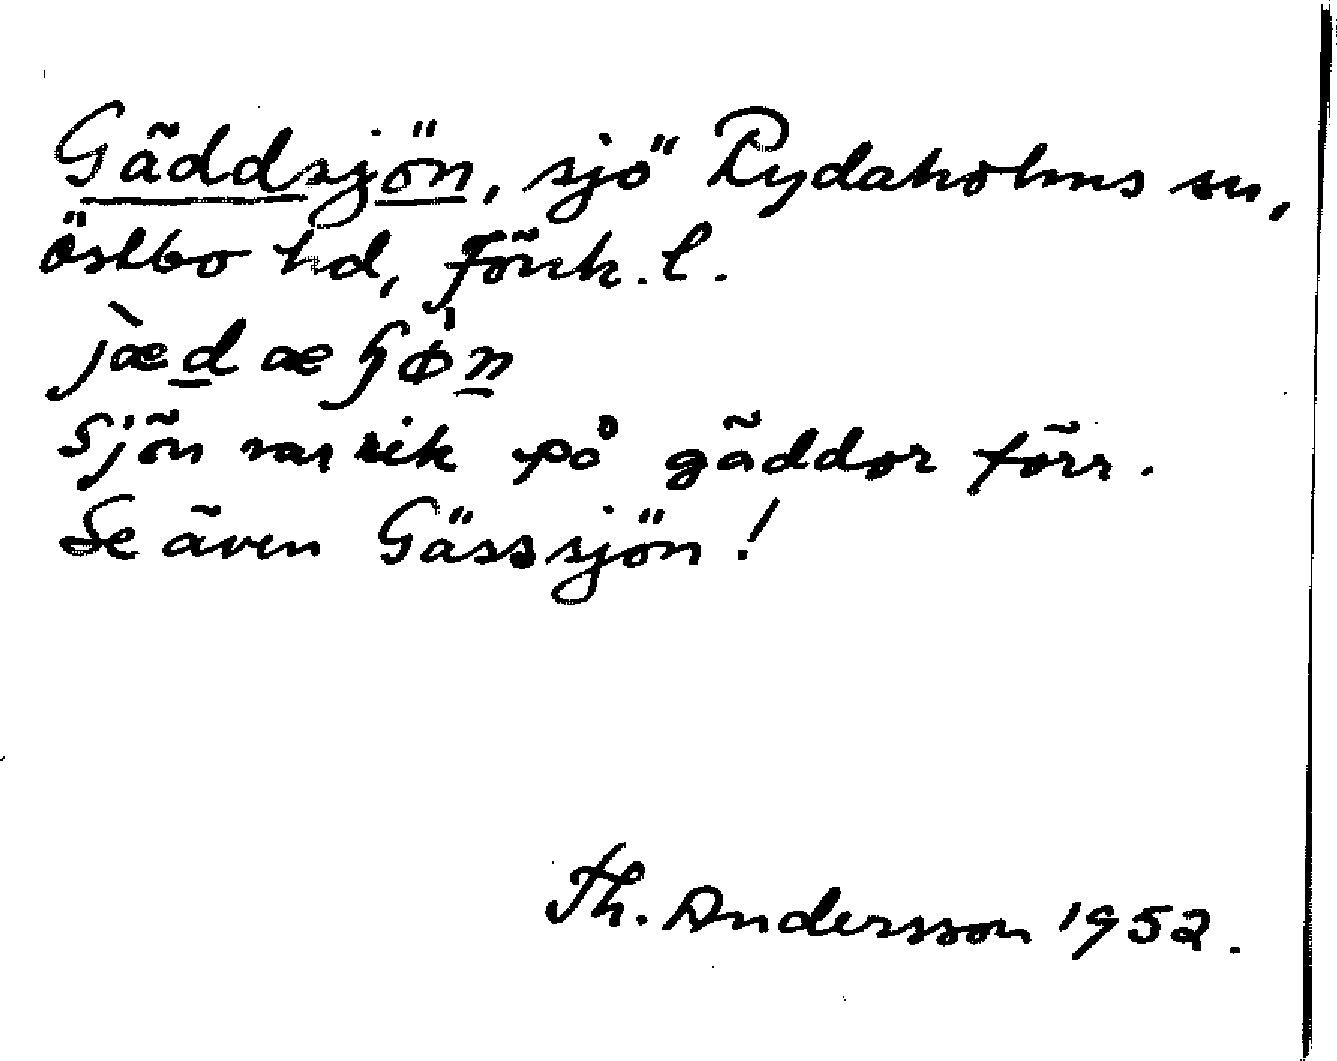 Gäddsjön, sjö Rydaholms sn,
Östbo hd, Jönk. l.
jæ̀dæɧø̀n
Sjön var rik på gäddor förr.
Se även Gässsjön!
Th. Andersson 1952.